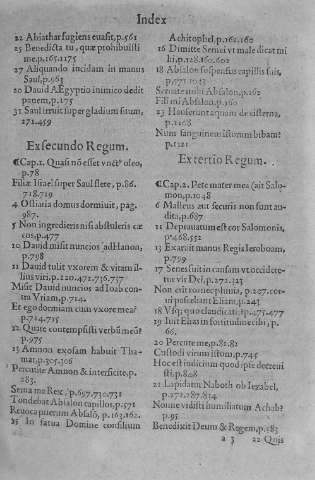 Index
22 Abiathar fugiens euasit, p.561
25 Benedicta tu, quæ prohibuisti
me, p.165.1175
27 Aliquando incidam in manus
Saul, p.963
30 Dauid Ægyptio inimico dedit
panem, p.175
31 Saul irruit super gladium suum,
271.459
Ex secundo Regum.
¶Cap.1. Quasi nõ esset vnctº oleo,
p.78
Filiæ Israel super Saul flete, p.86.
718.719
4 Ostiaria domus dormiuit, pag.
987.
5 Non ingredieris nisi abstuleris cæ
cos, p.477
10 Dauid misit nuncios ad Hanon,
p.798
11 Dauid tulit vxorem & vitam il-
lius viri, p.220.472.736.737
Misit Dauid nuncios ad Ioab con-
tra Vriam, p.714.
Et ego dormiam cum vxore mea?
p.714.715
12 Quare contempsisti verbũ meũ?
p.975
13 Amnon exosam habuit Tha-
mar, p.305.306
Percutite Amnon & interficite, p.
283.
Serua me Rex, p.697.730.731
Tondebat Absalon capillos, p.571
Reuoca puerum Absalõ, p.163.162.
15 In fatua Domine consilium
Achitophel, p.161.160
16 Dimitte Semei vt male dicat mi
hi, p.128.160.602
18 Absalon suspensus capillis suis,
p.571.1053
Seruate mihi Absalon, p.162
Fili mi Absalon, p.160
23 Hauserunt aquam de cisterna,
p.1168
Num sanguinem istorum bibam?
p.1121
Ex tertio Regum.
¶Cap.2. Pete mater mea (ait Salo-
mon, p.1048
6 Malleus aut securis non sunt au-
dita, p.687
11 Deprauatum est cor Salomonis,
p.468.552
13 Exaruit manus Regis Ieroboam,
p.799
17 Senes fuit in causam vt occidere-
tur vir Dei, p.272.323
18 Vsq; quo claudicatis, p.475.477
19 Iuit Elias in fortitudine cibi, p.
66.
20 Percute me, p.81.82
Custodi virum istum, p.745
Hoc est indicium quod ipse decreui
sti, p.808
21 Lapidatur Naboth ob Iezabel,
p.272.287.814
Nonne vidisti humiliatum Achab?
p.95
Benedixit Deum & Regem, p.183
a 3 22 Quis